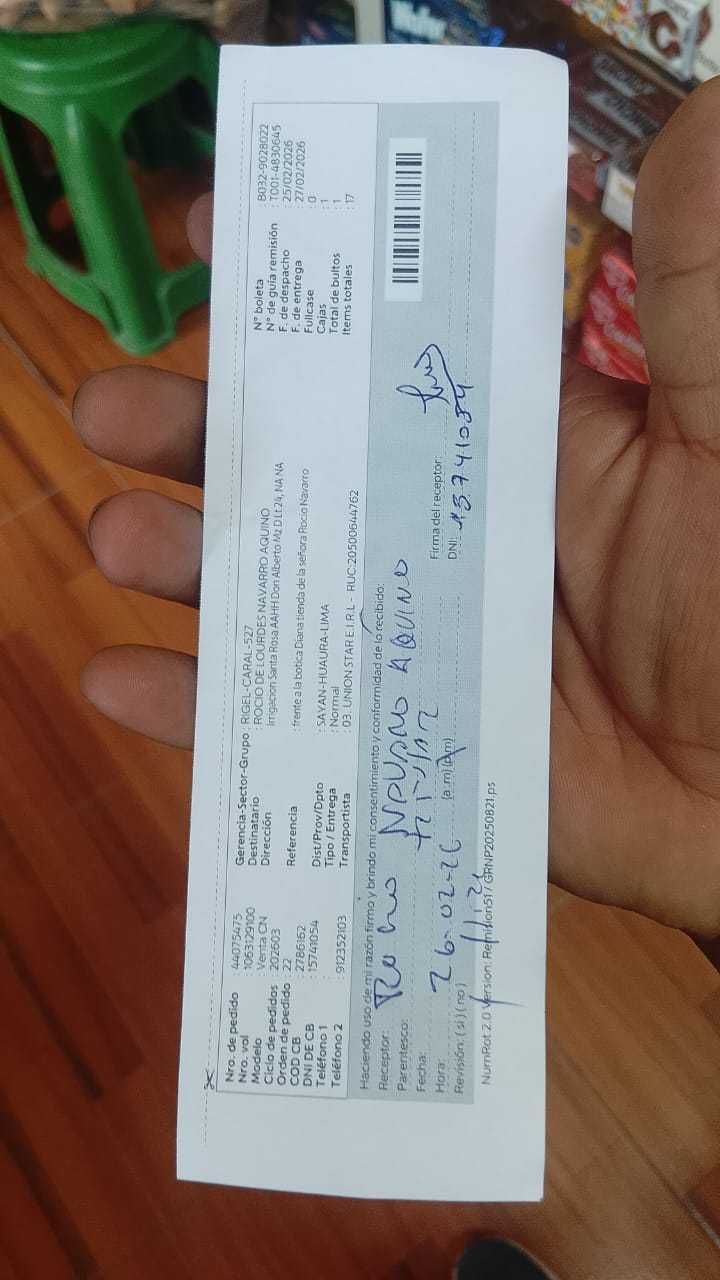 Nro. de pedido : 44075475
Nro. vol : 1063129100
Modelo : Venta CN
Ciclo de pedidos : 202603
Orden de pedido : 22
COD CB : 2786162
DNI DE CB : 15741054
Teléfono 1 :
Teléfono 2 : 912352103
Gerencia-Sector-Grupo : RIGEL-CARAL-527
Destinatario : ROCIO DE LOURDES NAVARRO AQUINO
Dirección : Irrigacion Santa Rosa AAHH Don Alberto Mz D Lt 24, NA NA
Referencia : frente a la botica Diana tienda de la señora Rocio Navarro
Dist/Prov/Dpto : SAYAN-HUAURA-LIMA
Tipo / Entrega : Normal
Transportista : 03. UNION STAR E.I.R.L - RUC:20500644762
N° boleta : B032-9028022
N° de guía remisión : T001-4830645
F. de despacho : 25/02/2026
F. de entrega : 27/02/2026
Fullcase : 0
Cajas : 1
Total de bultos : 1
Items totales : 17
Haciendo uso de mi razón firmo y brindo mi consentimiento y conformidad de lo recibido:
Receptor: Rocio Navarro Aquino
Parentesco: titular
Fecha: 26-02-26
Hora: 11:21 (a.m)(p.m)
Revisión: (si) (no)
Firma del receptor:
DNI: 15741054
NumRot 2.0 Version: Remision51 / GRNP20250821.ps
Wafer